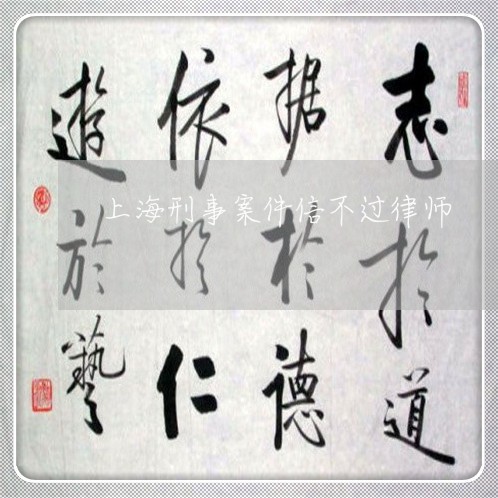 志於道
据於德
依於仁
遊於藝
上海刑事案件信不过律师